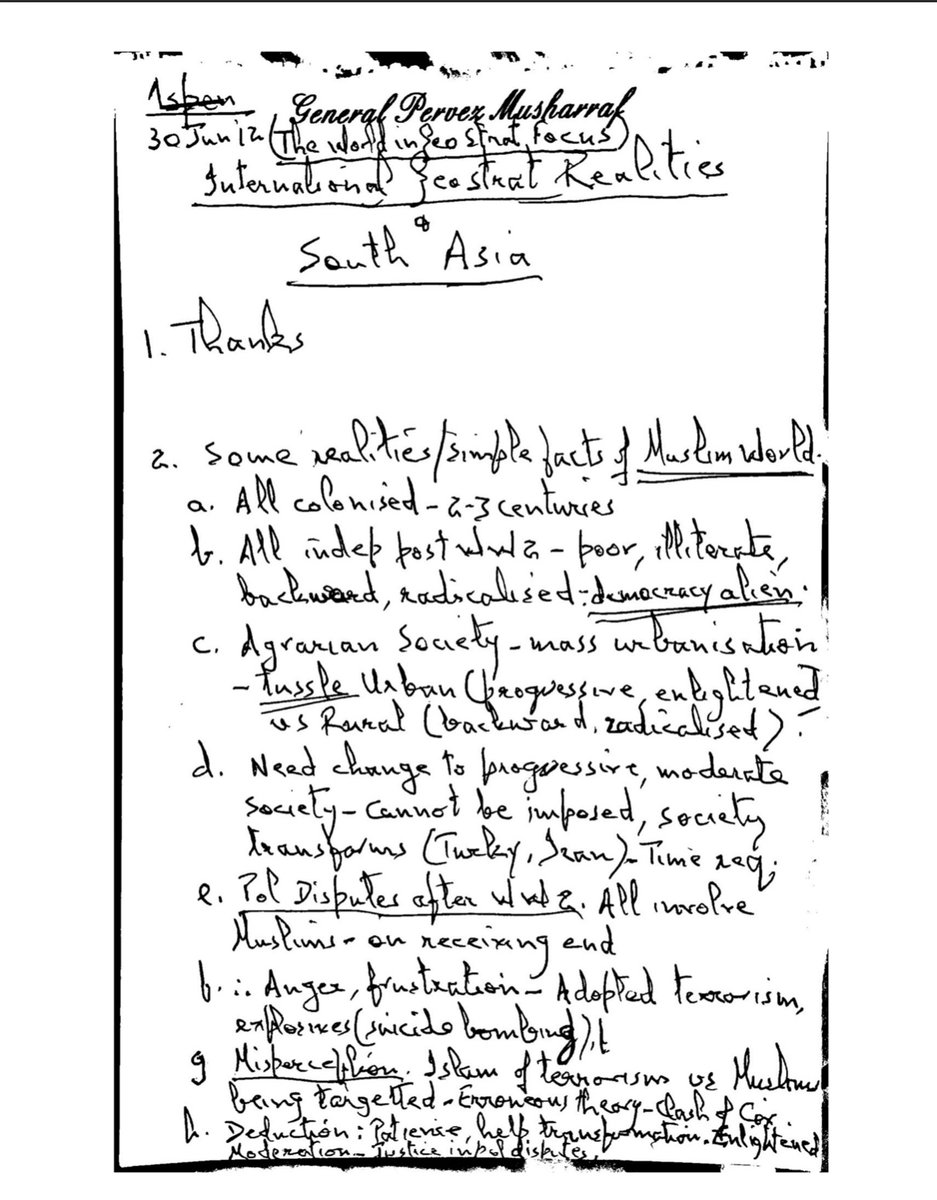 Aspen
General Pervez Musharraf
30 Jun 12 (The World in Geo Strat Focus)
International Geostrat Realities
&
South Asia
1. Thanks
2. Some realities/simple facts of Muslim World.
a. All colonised - 2-3 centuries
b. All indep post WW2 - poor, illiterate,
backward, radicalised - democracy alien.
c. Agrarian Society - mass urbanisation
- tussle Urban (progressive, enlightened
vs Rural (backward, radicalised).
d. Need change to progressive, moderate
society - Cannot be imposed, society
transforms (Turkey, Iran) - Time req.
e. Pol Disputes after WW2. All involve
Muslims - on receiving end
f. ∴ Anger, frustration - Adopted terrorism,
explosives (suicide bombing),
g Misperception. Islam of terrorism vs Muslims
being targetted - Erroneous theory - Clash of
h. Deduction: Patience, help transformation. Enlightened
Moderation - Justice in pol disputes.